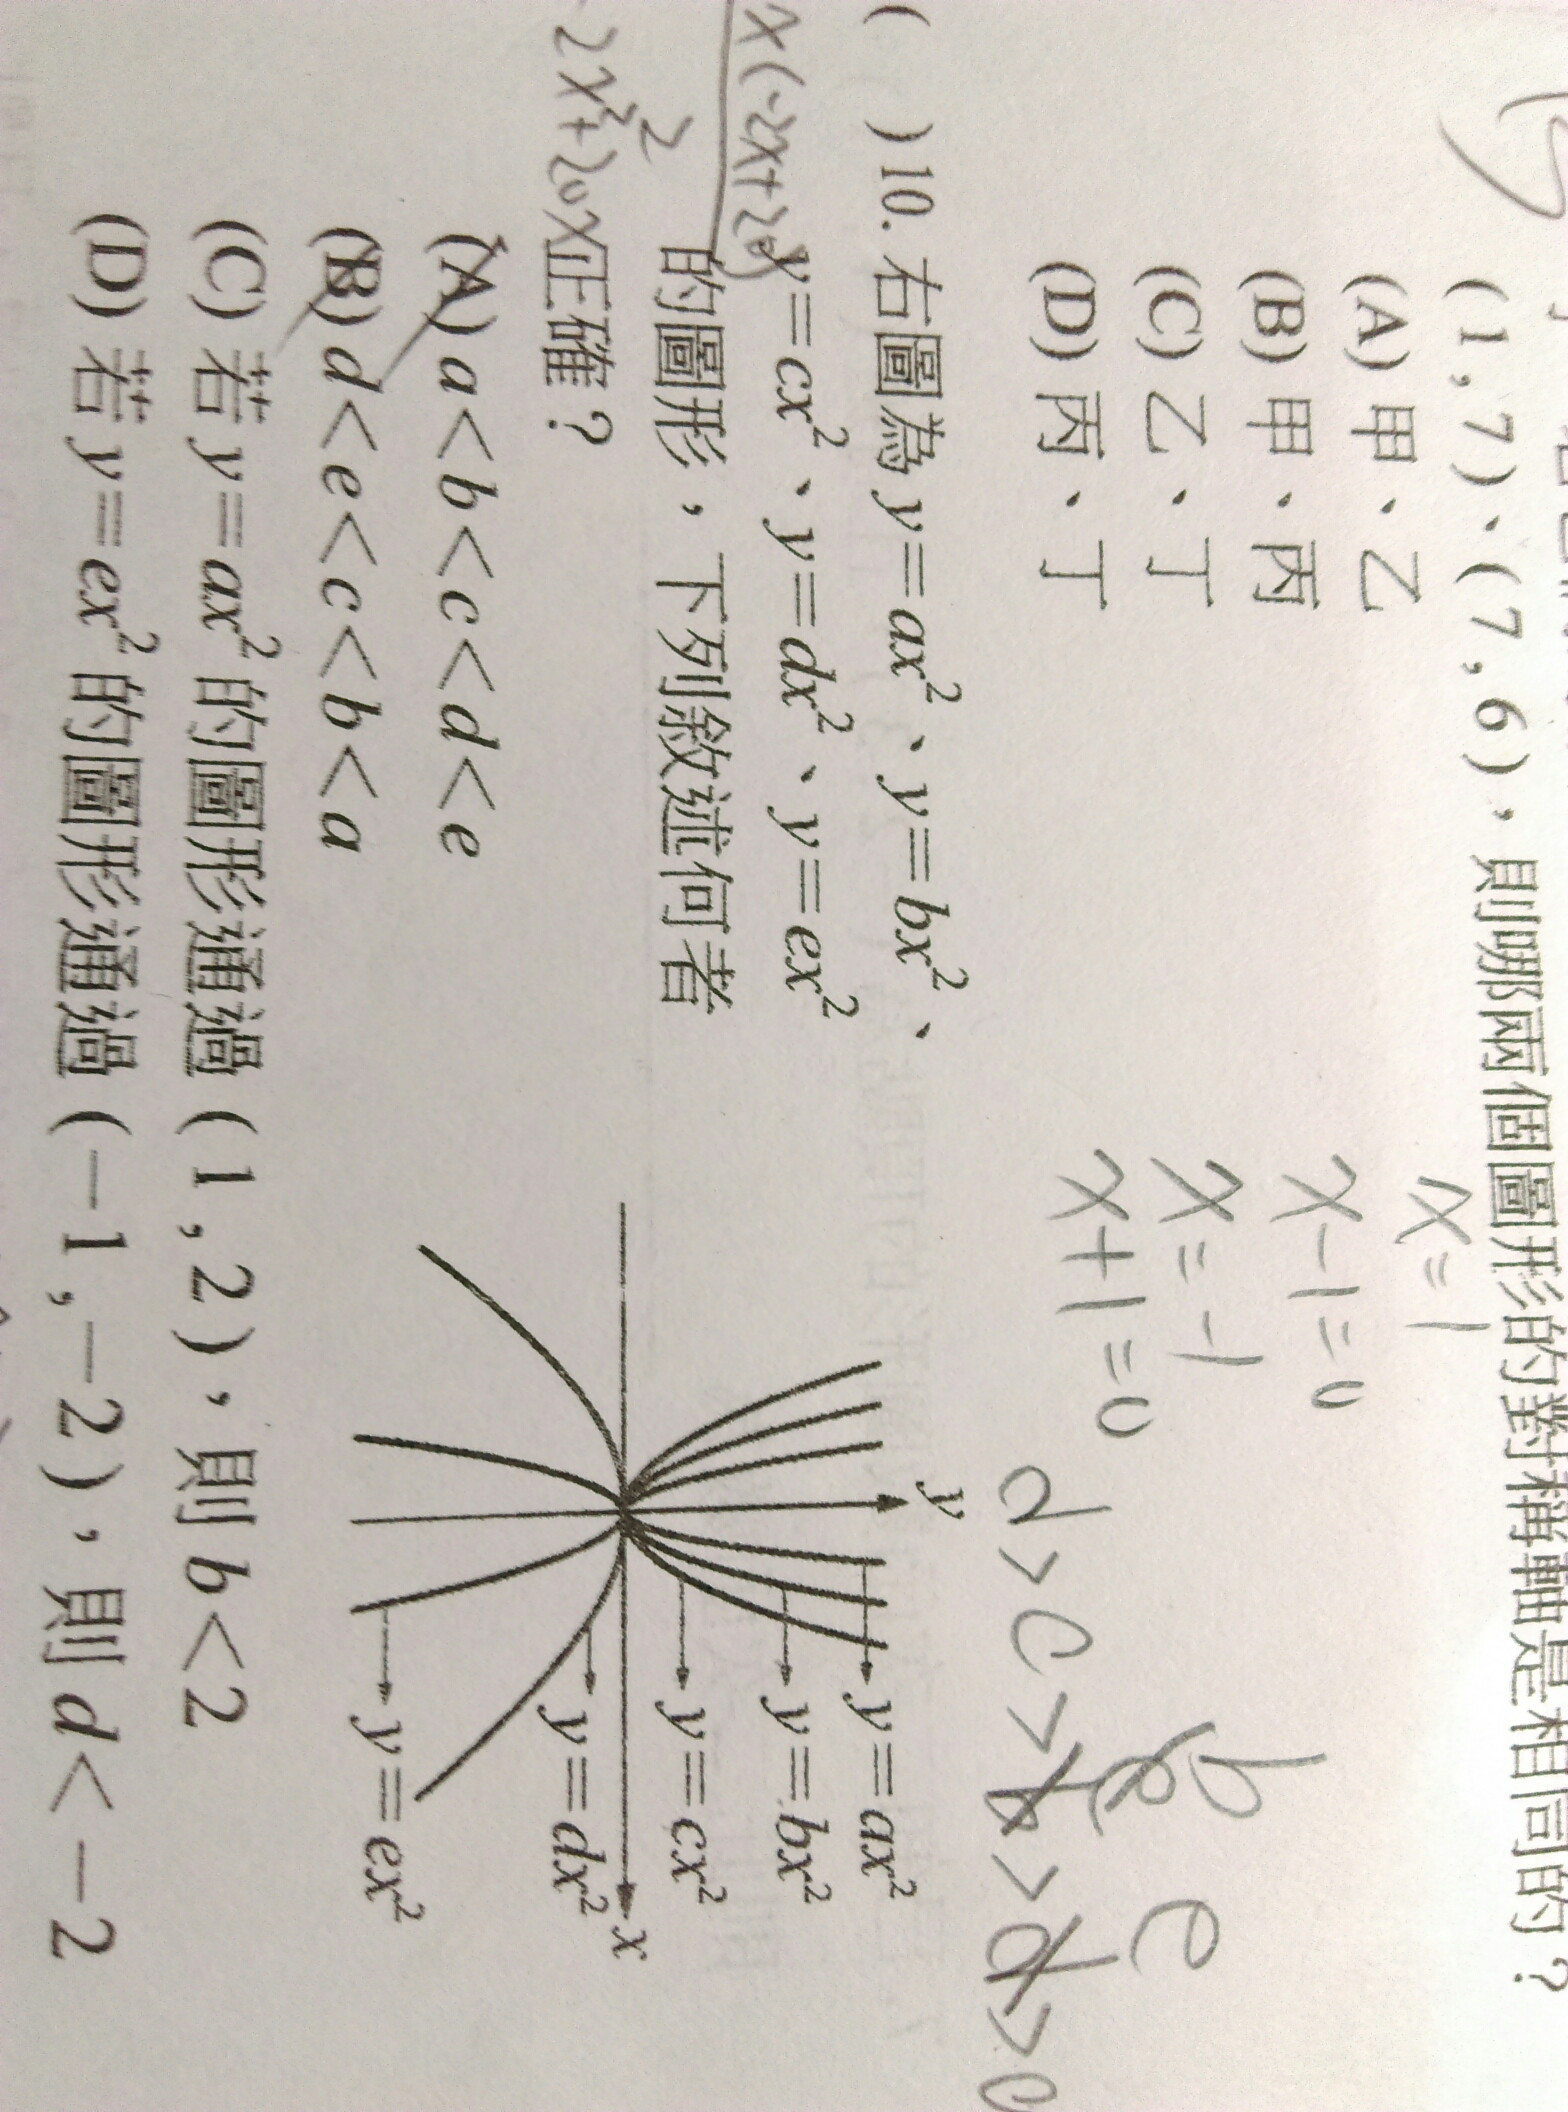 (1,7)、(7,6)，則哪兩個圖形的對稱軸是相同的？
(A) 甲、乙
(B) 甲、丙
(C) 乙、丁
(D) 丙、丁
x=1
x-1=0
x=-1
x+1=0
(　) 10. 右圖為 y=ax²、y=bx²、
y=cx²、y=dx²、y=ex²
的圖形，下列敘述何者
正確？
(A) a<b<c<d<e
(B) d<e<c<b<a
(C) 若 y=ax² 的圖形通過 (1,2)，則 b<2
(D) 若 y=ex² 的圖形通過 (-1,-2)，則 d<-2
x(-2x+20)
2
2x²+20x
b e
d>c>
>0
y
y=ax²
y=bx²
y=cx²
x
y=dx²
y=ex²